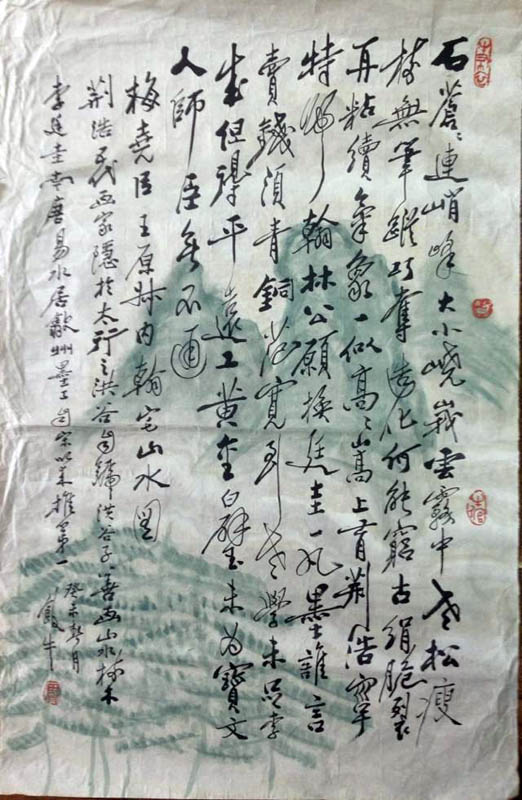 石蒼〻連峭峰大小嶢峩雲霧中老松瘦
樹無筆蹤巧奪造化何能窮古絹脆裂
再粘續氣象一似高〻嵩上有荆浩字
特歸翰林公願換廷圭一丸墨誰言
賣錢須青銅范寬到老學未足李
成但得平遠工黄金白璧未為寶文
人師臣無不通
梅堯臣王原叔内翰宅山水圖
荆浩五代画家隱於太行之洪谷自號洪谷子善画山水樹木
李廷圭南唐易水居歙州墨工自宋以来推第一
癸未月
飯牛